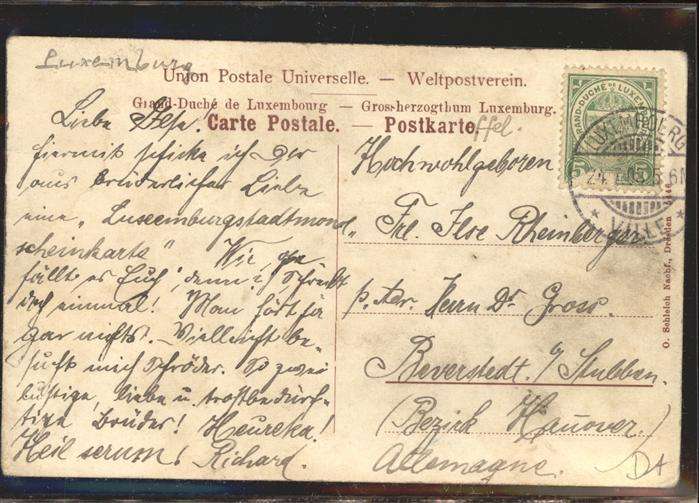 Luxemburg
Union Postale Universelle. — Weltpostverein.
Grand-Duché de Luxembourg — Grossherzogthum Luxemburg.
Carte Postale. — Postkarte
Liebe Ilse!
hiermit schicke ich Dir
aus brüderlicher Liebe
eine „Luxemburgstadtmond-
scheinkarte“ Wie
fällt es Euch, denn? Schreibt
doch einmal! Man hört ja
gar nichts. Vielleicht be-
sucht mich Schröder. So zwei
lustige, liebe u. trostbedürf-
tige Brüder! Heureka!
Heil serum! Richard.
Hochwohlgeboren
Frl. Ilse Rheinberger
p. Adr. Herrn Dr. Gross.
Beverstedt. b/ Stubben.
(Bezirk Hanover.)
Allemagne.
GRAND-DUCHÉ DE LUXEM
5 5
LUXEMBURG
O. Schleich Nachf., Dresden